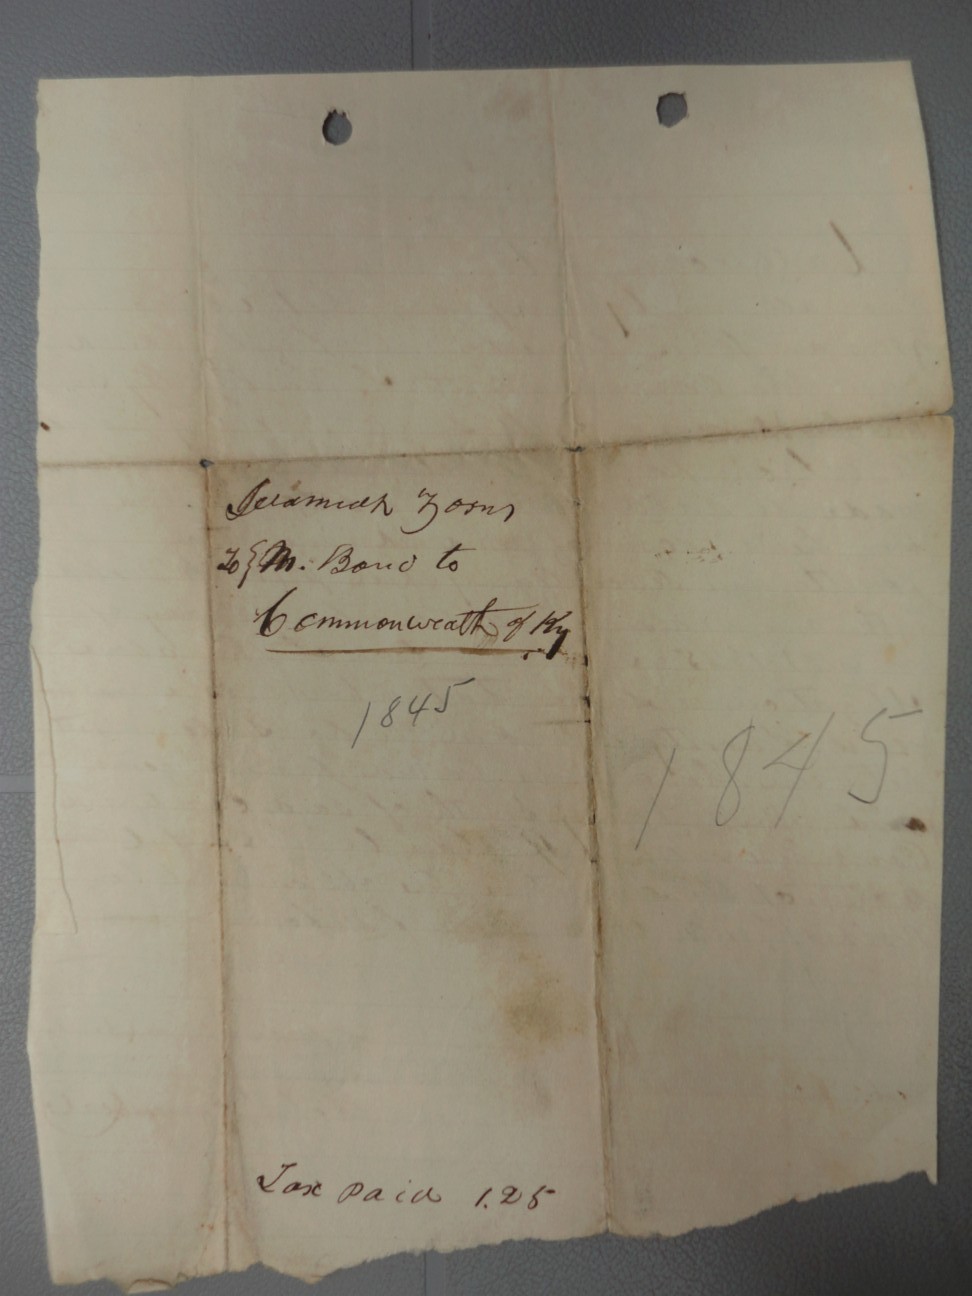 Jeremiah Zorns
To } M. Bond to
Commonwealth of Ky
1845
1845
Tax paid 1.25